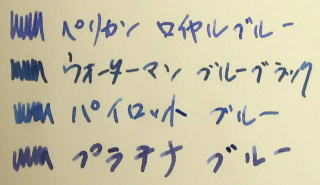 ペリカン ロイヤルブルー
ウォーターマン ブルーブラック
パイロット ブルー
プラチナ ブルー